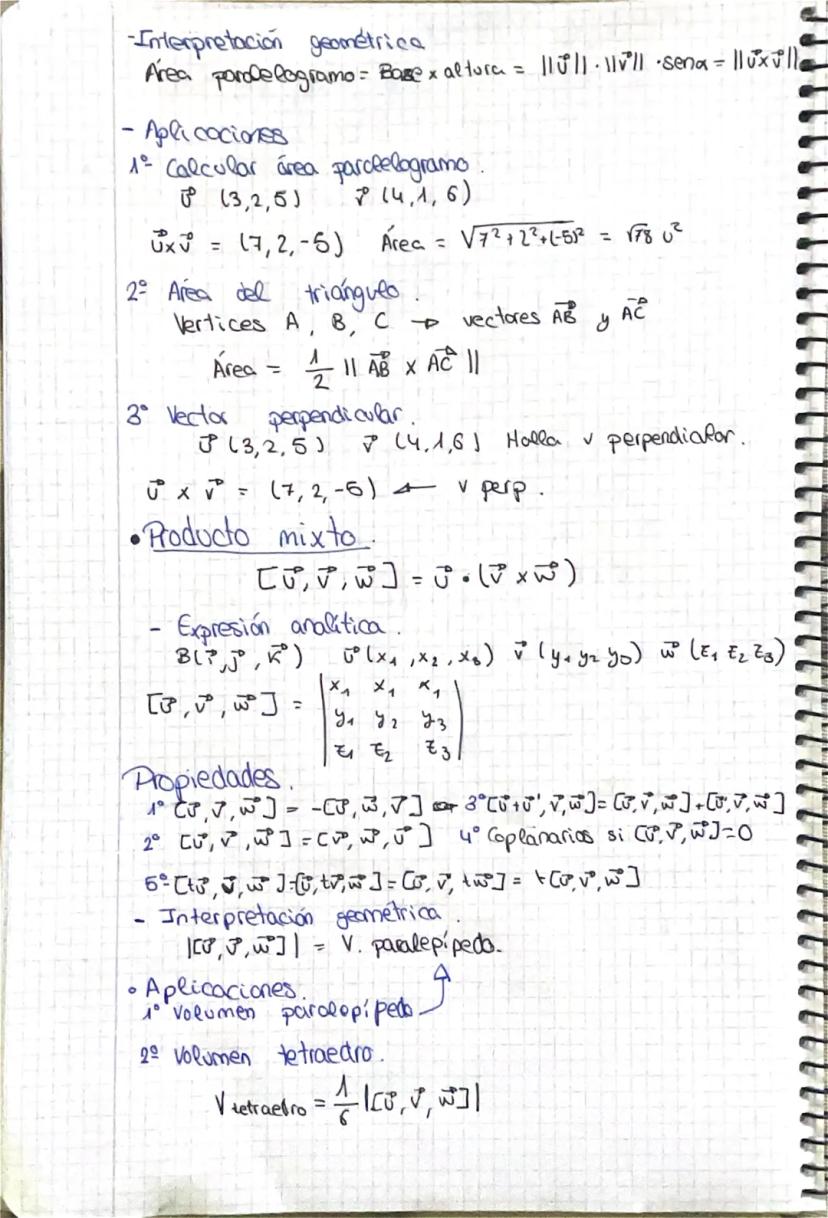 -Interpretación geométrica
Área paralelogramo = Base x altura = ||u⃗|| · ||v⃗|| · senα = ||u⃗xv⃗||
- Aplicaciones
1º Calcular área paralelogramo.
u⃗ (3,2,5) v⃗ (4,1,6)
u⃗xv⃗ = (7,2,-5) Área = √7²+2²+(-5)² = √78 u²
2º Área del triángulo.
Vertices A, B, C → vectores AB⃗ y AC⃗
Área = 1/2 || AB⃗ x AC⃗ ||
3º Vector perpendicular.
u⃗ (3,2,5) v⃗ (4,1,6) Halla v perpendicular.
u⃗ x v⃗ = (7,2,-5) ← v perp.
• Producto mixto.
[u⃗, v⃗, w⃗] = u⃗ • (v⃗ x w⃗)
- Expresión analítica.
B(i⃗, j⃗, k⃗) u⃗ (x₁, x₂, x₃) v⃗ (y₁ y₂ y₃) w⃗ (z₁ z₂ z₃)
[u⃗, v⃗, w⃗] = | x₁ x₁ x₁ |
| y₁ y₂ y₃ |
| z₁ z₂ z₃ |
Propiedades.
1º [u⃗, v⃗, w⃗] = -[u⃗, w⃗, v⃗] 3º [u⃗+u⃗', v⃗, w⃗] = [u⃗, v⃗, w⃗] + [u⃗, v⃗, w⃗]
2º [u⃗, v⃗, w⃗] = [v⃗, w⃗, u⃗] 4º Coplanarios si [u⃗, v⃗, w⃗] = 0
5º [tu⃗, v⃗, w⃗] = [u⃗, tv⃗, w⃗] = [u⃗, v⃗, tw⃗] = t[u⃗, v⃗, w⃗]
- Interpretación geométrica.
|[u⃗, v⃗, w⃗]| = V. paralepípedo.
• Aplicaciones.
1º Volumen paralepípedo
2º Volumen tetraedro.
V tetraedro = 1/6 |[u⃗, v⃗, w⃗]|